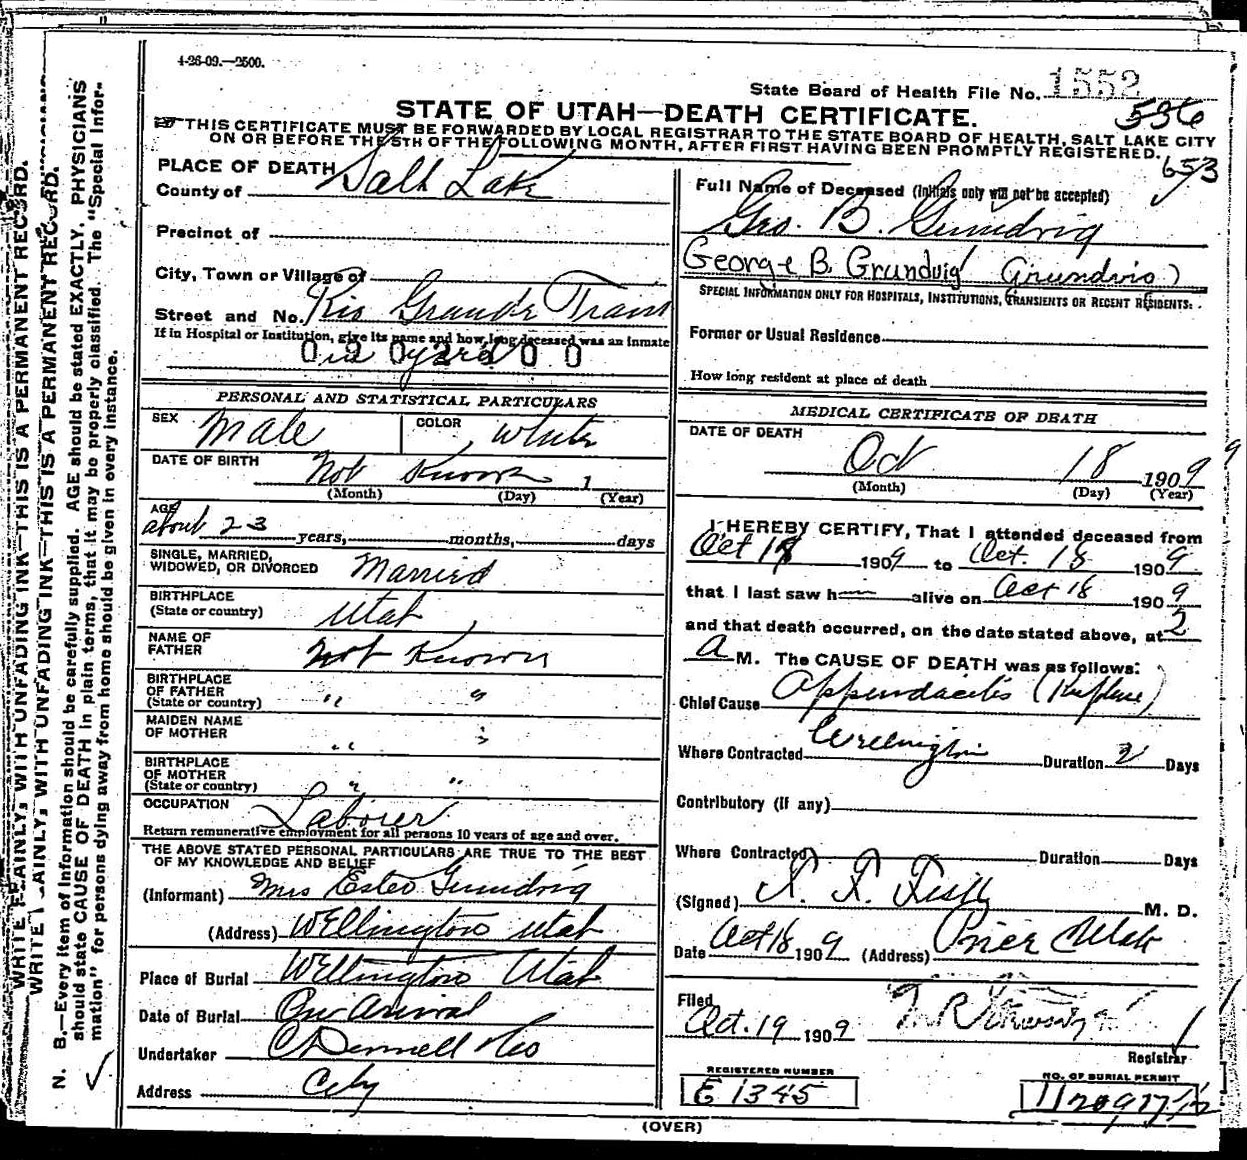 4-26-09.—2500.
State Board of Health File No. 1552
STATE OF UTAH—DEATH CERTIFICATE.
536
THIS CERTIFICATE MUST BE FORWARDED BY LOCAL REGISTRAR TO THE STATE BOARD OF HEALTH, SALT LAKE CITY
ON OR BEFORE THE 5TH OF THE FOLLOWING MONTH, AFTER FIRST HAVING BEEN PROMPTLY REGISTERED.
653
PLACE OF DEATH
County of Salt Lake
Precinct of
City, Town or Village of
Street and No. Rio Grande Train
If in Hospital or Institution, give its name and how long deceased was an inmate
in yard
PERSONAL AND STATISTICAL PARTICULARS
SEX Male COLOR White
DATE OF BIRTH Not Known 1
(Month) (Day) (Year)
AGE
about 23 years, months, days
SINGLE, MARRIED,
WIDOWED, OR DIVORCED Married
BIRTHPLACE
(State or country) Utah
NAME OF
FATHER Not Known
BIRTHPLACE
OF FATHER
(State or country) " "
MAIDEN NAME
OF MOTHER " "
BIRTHPLACE
OF MOTHER
(State or country) " "
OCCUPATION Laborer
Return remunerative employment for all persons 10 years of age and over.
THE ABOVE STATED PERSONAL PARTICULARS ARE TRUE TO THE BEST
OF MY KNOWLEDGE AND BELIEF
(Informant) Mrs Grundvig
(Address) Wellington Utah
Place of Burial Wellington Utah
Date of Burial On Arrival
Undertaker
Address City
Full Name of Deceased (Initials only will not be accepted)
Geo. B. Grundvig
George B. Grundvig
SPECIAL INFORMATION ONLY FOR HOSPITALS, INSTITUTIONS, TRANSIENTS OR RECENT RESIDENTS.
Former or Usual Residence
How long resident at place of death
MEDICAL CERTIFICATE OF DEATH
DATE OF DEATH
Oct 18 1909
(Month) (Day) (Year)
I HEREBY CERTIFY, That I attended deceased from
Oct 18 1909 to Oct. 18 1909
that I last saw h alive on Oct 18 1909
and that death occurred, on the date stated above, at 2
A M. The CAUSE OF DEATH was as follows:
Chief Cause Appendacitis
Where Contracted Wellington Duration 2 Days
Contributory (if any)
Where Contracted Duration Days
(Signed) M. D.
Date Oct 18 1909 (Address) Price Utah
Filed
Oct. 19 1909
Registrar
REGISTERED NUMBER
E 1345
NO. OF BURIAL PERMIT
(OVER)
WRITE PLAINLY, WITH UNFADING INK—THIS IS A PERMANENT RECORD.
N. B.—Every item of information should be carefully supplied. AGE should be stated EXACTLY. PHYSICIANS
should state CAUSE OF DEATH in plain terms, that it may be properly classified. The "Special Infor-
mation" for persons dying away from home should be given in every instance.